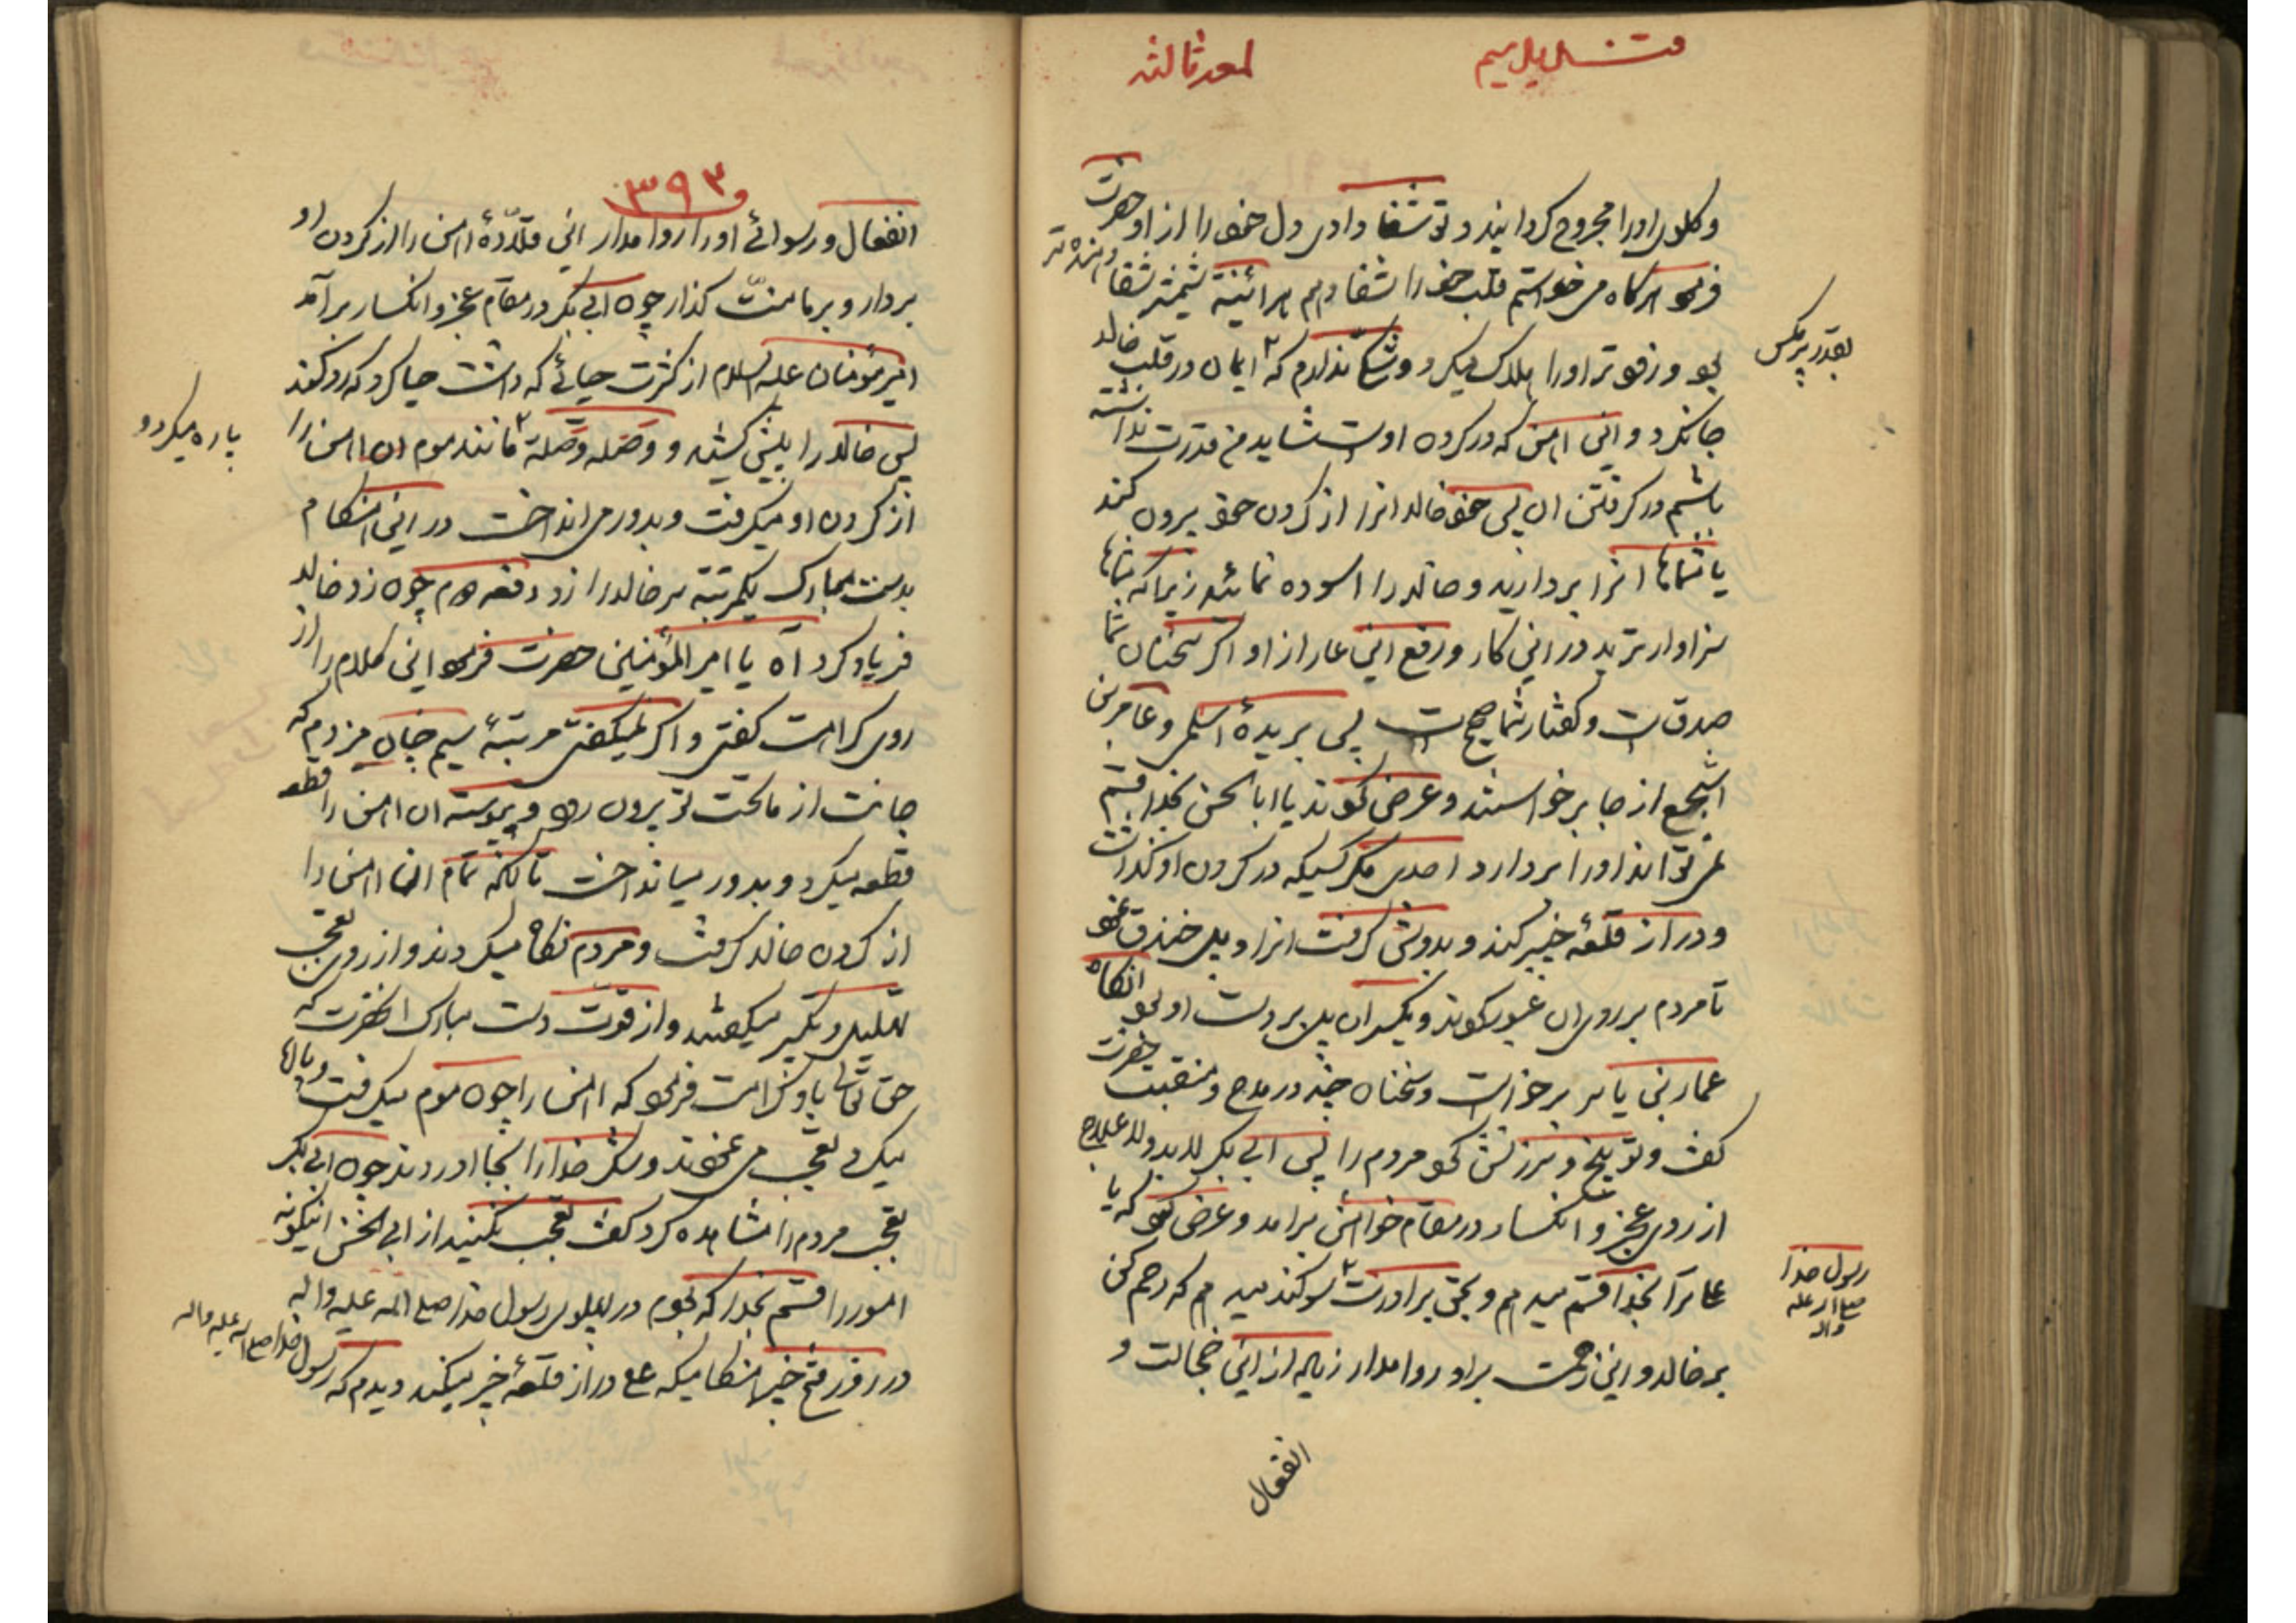 لمعه ثالثه
وکلوی اورا مجروح کردانیدو تو شفا دادی دل خود را از او حضرت
فرمود هرکاه میخواستم قلب خود را شفا دهم هرائینه شمشیر شفا دهنده تر
بود و زودتر اورا هلاک میکرد و شکّ ندارم که ایمان در قلب خالد
جا نکرد و این اهن که در کردن اوست شاید من قدرت نداشته
باشم در کرفتن ان پس خود خالد انرا از کردن خود بیرون کند
یا شماها انرا بردارید و خالد را اسوده نمائید زیرا که شماها
سزاوارترید در این کار و رفع این عار از او اکر سخنان شما
صدقست و کفتار شما صحیح است پس بریدهٔ اسلمی و عامر بن
اشجع از جا برخواستند و عرض نمودند یا ابا الحسن بخدا قسم
نمیتواند اورا بردارد احدی مکر کسیکه در کردن او کذاشت
و در از قلعهٔ خیبر کند و بدوش کرفت انرا و پل خندق نمود
تا مردم بر روی ان عبور نمودند و یکسر ان پل بر دست او بود انکاه
عمار بن یاسر برخواست و سخنان چند در مدح و منقبت حضرت
کفت و توبیخ و سرزنش نمود مردم را پس ابی بکر لابد و لاعلاج
از روی عجز و انکسار در مقام خواهش برامد و عرض نمود که یا
علی ترا بخدا قسم میدهم و بحق برادرت سوکند میدهم که رحم کن
بر خالد و این زحمت بر او روا مدار زیاده از این خجالت و
رسول خدا
صلی الله علیه
واله
انفعال
۳۹۳
انفعال و رسوائے اورا روا مدار این قلّادهٔ اهن را از کردن او
بردار و بر ما منّت کذار چون ابی بکر در مقام عجز و انکسار برآمد
امیرمؤمنان علیه السلام از کثرت حیائے که داشت حیا کرد که رد کند
پس خالد را پیش کشید و وصله وصله مانند موم ان اهن را
پاره میکرد و
از کردن او میکرفت و بدور می انداخت در این هنکام
بدست مبارک یکمرتبه بر سر خالد را زد دفعه دوم چون زد خالد
فریاد کرد آه یا امیر المؤمنین حضرت فرمود این کلام را از
روی کراهت کفتی و اکر نمیکفتی مرتبهٔ سیم چنان میزدم که
جانت از ماتحت تو بیرون رود و پیوسته ان اهن را قطعه
قطعه میکرد و بدور میانداخت تا انکه تمام ان اهن را
از کردن خالد کرفت و مردم نکاه میکردند و از روی تعجب
تهلیل و تکبیر میکفتند و از قوت دست مبارک انحضرت که
حق تعالی باو کرامت فرمود که اهن را چون موم میکرفت و پارها
میکرد تعجب می نمودند و شکر خدا را بجا اوردند چون ابی بکر
تعجب مردم را مشاهده کرد کفت تعجب نکنید از ابی الحسن اینکونه
امور را قسم بخدا که بودم در پهلوی رسول خدا صلی الله علیه واله
در روز فتح خیبر هنکامیکه علی در از قلعهٔ خیبر میکند دیدم که رسول خدا صلی الله علیه واله